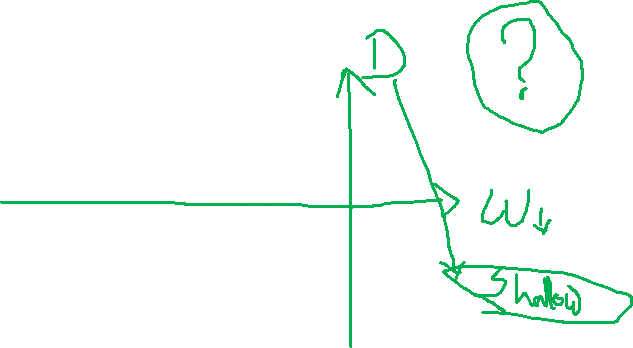 D
?
W↓
Shallow